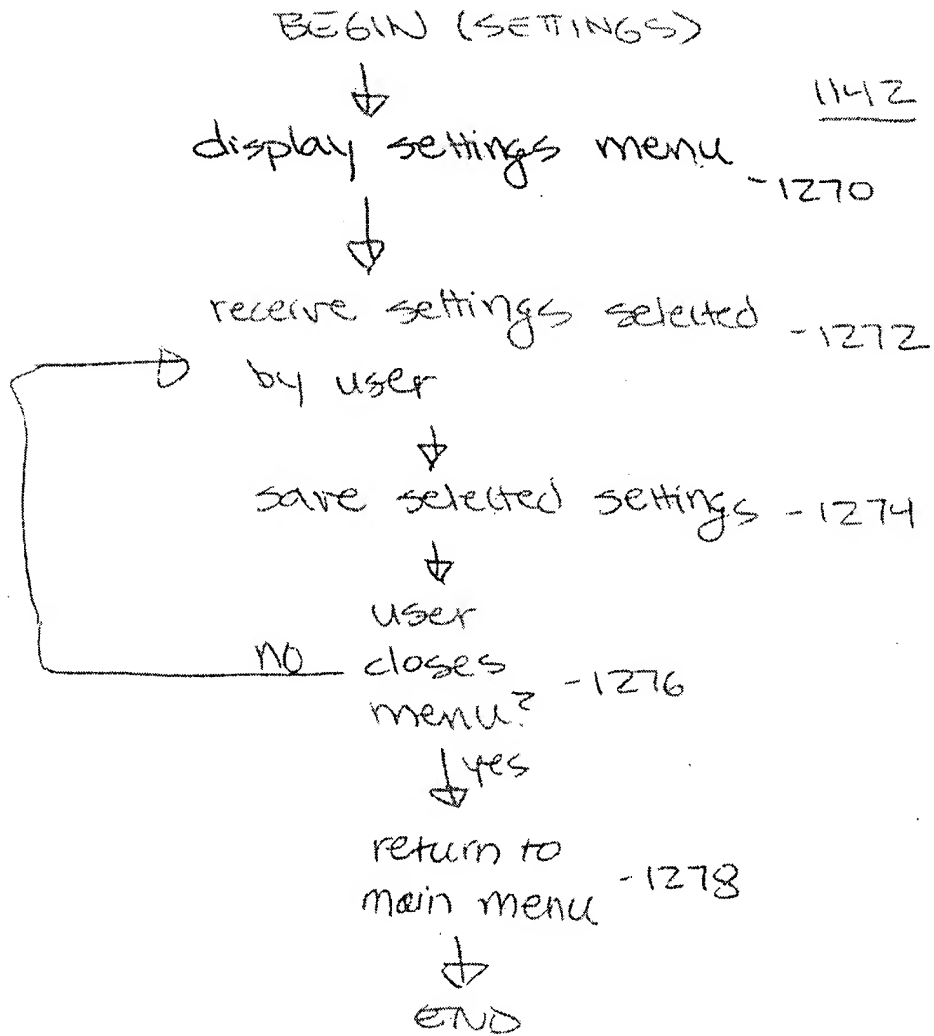 BEGIN (SETTINGS)
1142
display settings menu
-1270
receive settings selected -1272
by user
save selected settings -1274
user
no closes
menu? -1276
yes
return to
main menu -1278
END